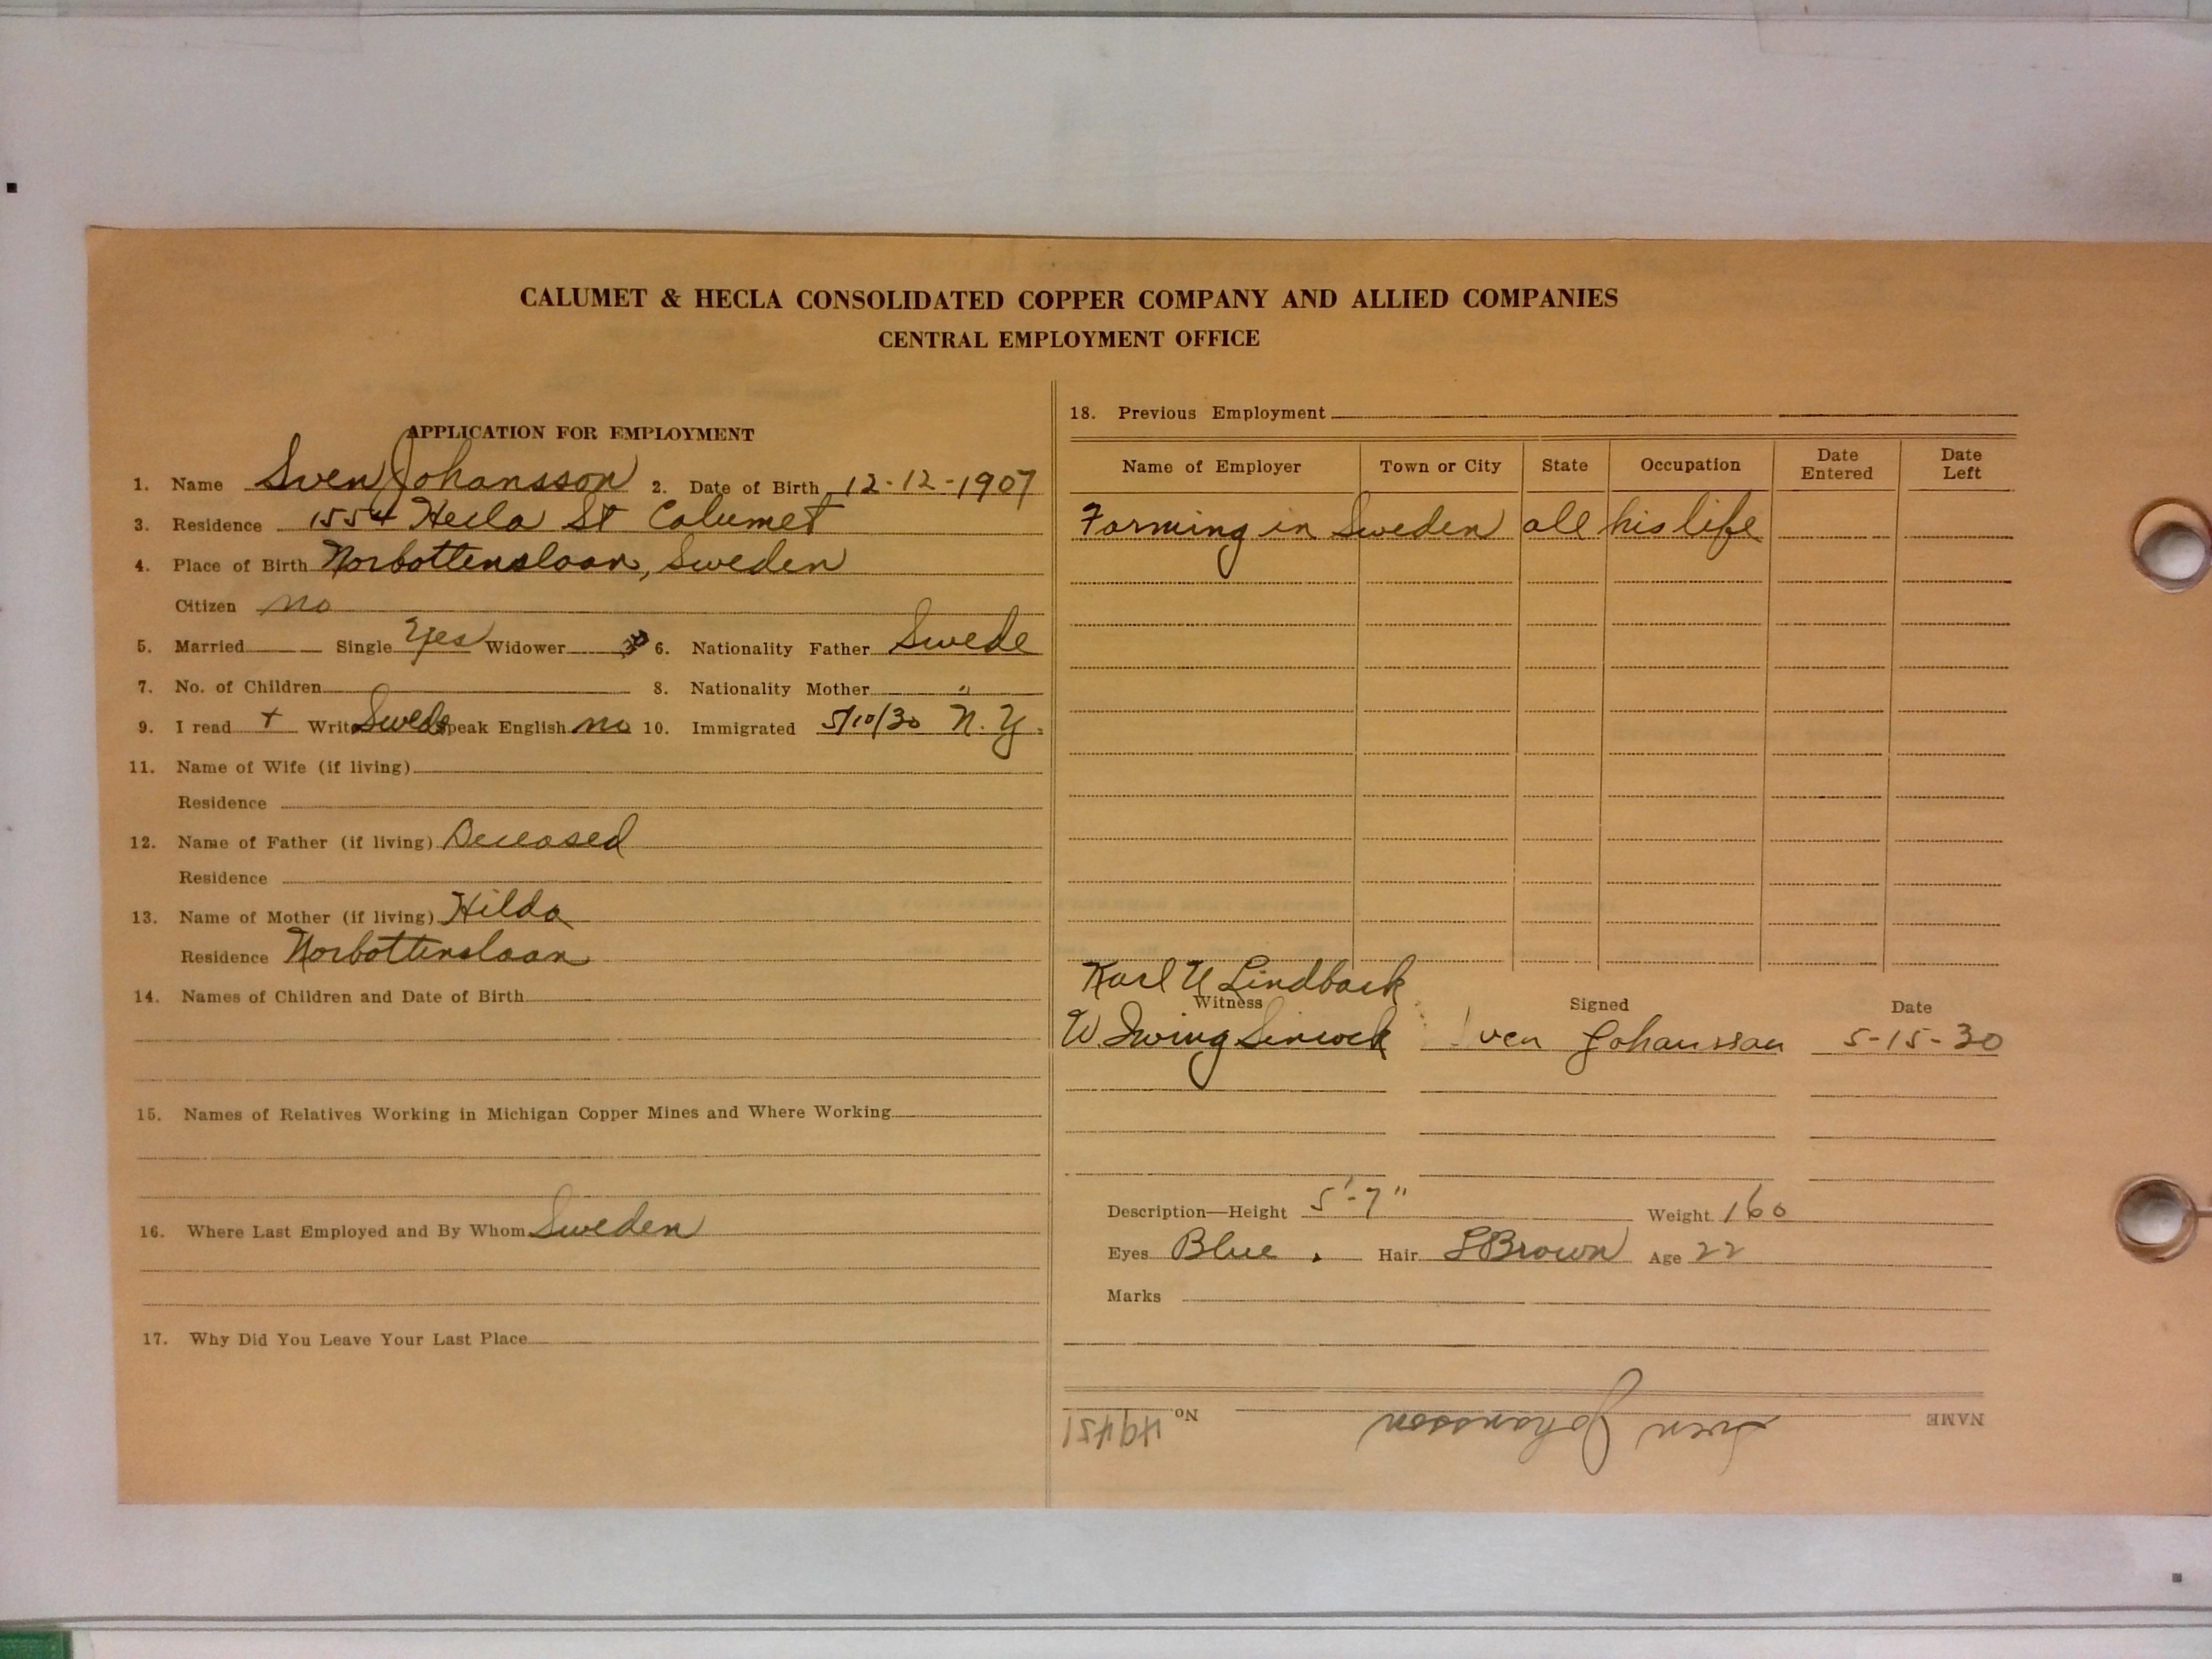 CALUMET & HECLA CONSOLIDATED COPPER COMPANY AND ALLIED COMPANIES
CENTRAL EMPLOYMENT OFFICE
APPLICATION FOR EMPLOYMENT
1. Name Sven Johansson 2. Date of Birth 12-12-1907
3. Residence 1554 Hecla St Calumet
4. Place of Birth Norbottenslaan, Sweden
Citizen no
5. Married Single Yes Widower 6. Nationality Father Swede
7. No. of Children 8. Nationality Mother "
9. I read + Write Swede Speak English no 10. Immigrated 5/10/30 N.Y.
11. Name of Wife (if living)
Residence
12. Name of Father (if living) Deceased
Residence
13. Name of Mother (if living) Hilda
Residence Norbottenslaan
14. Names of Children and Date of Birth
15. Names of Relatives Working in Michigan Copper Mines and Where Working
16. Where Last Employed and By Whom Sweden
17. Why Did You Leave Your Last Place
18. Previous Employment
Name of Employer Town or City State Occupation Date Entered Date Left
Farming in Sweden all his life
Karl U Lindback
Witness Signed Date
W. Irving Sincock Sven Johansson 5-15-30
Description—Height 5'-7" Weight 160
Eyes Blue . Hair LBrown Age 22
Marks
NAME Sven Johansson No 49451